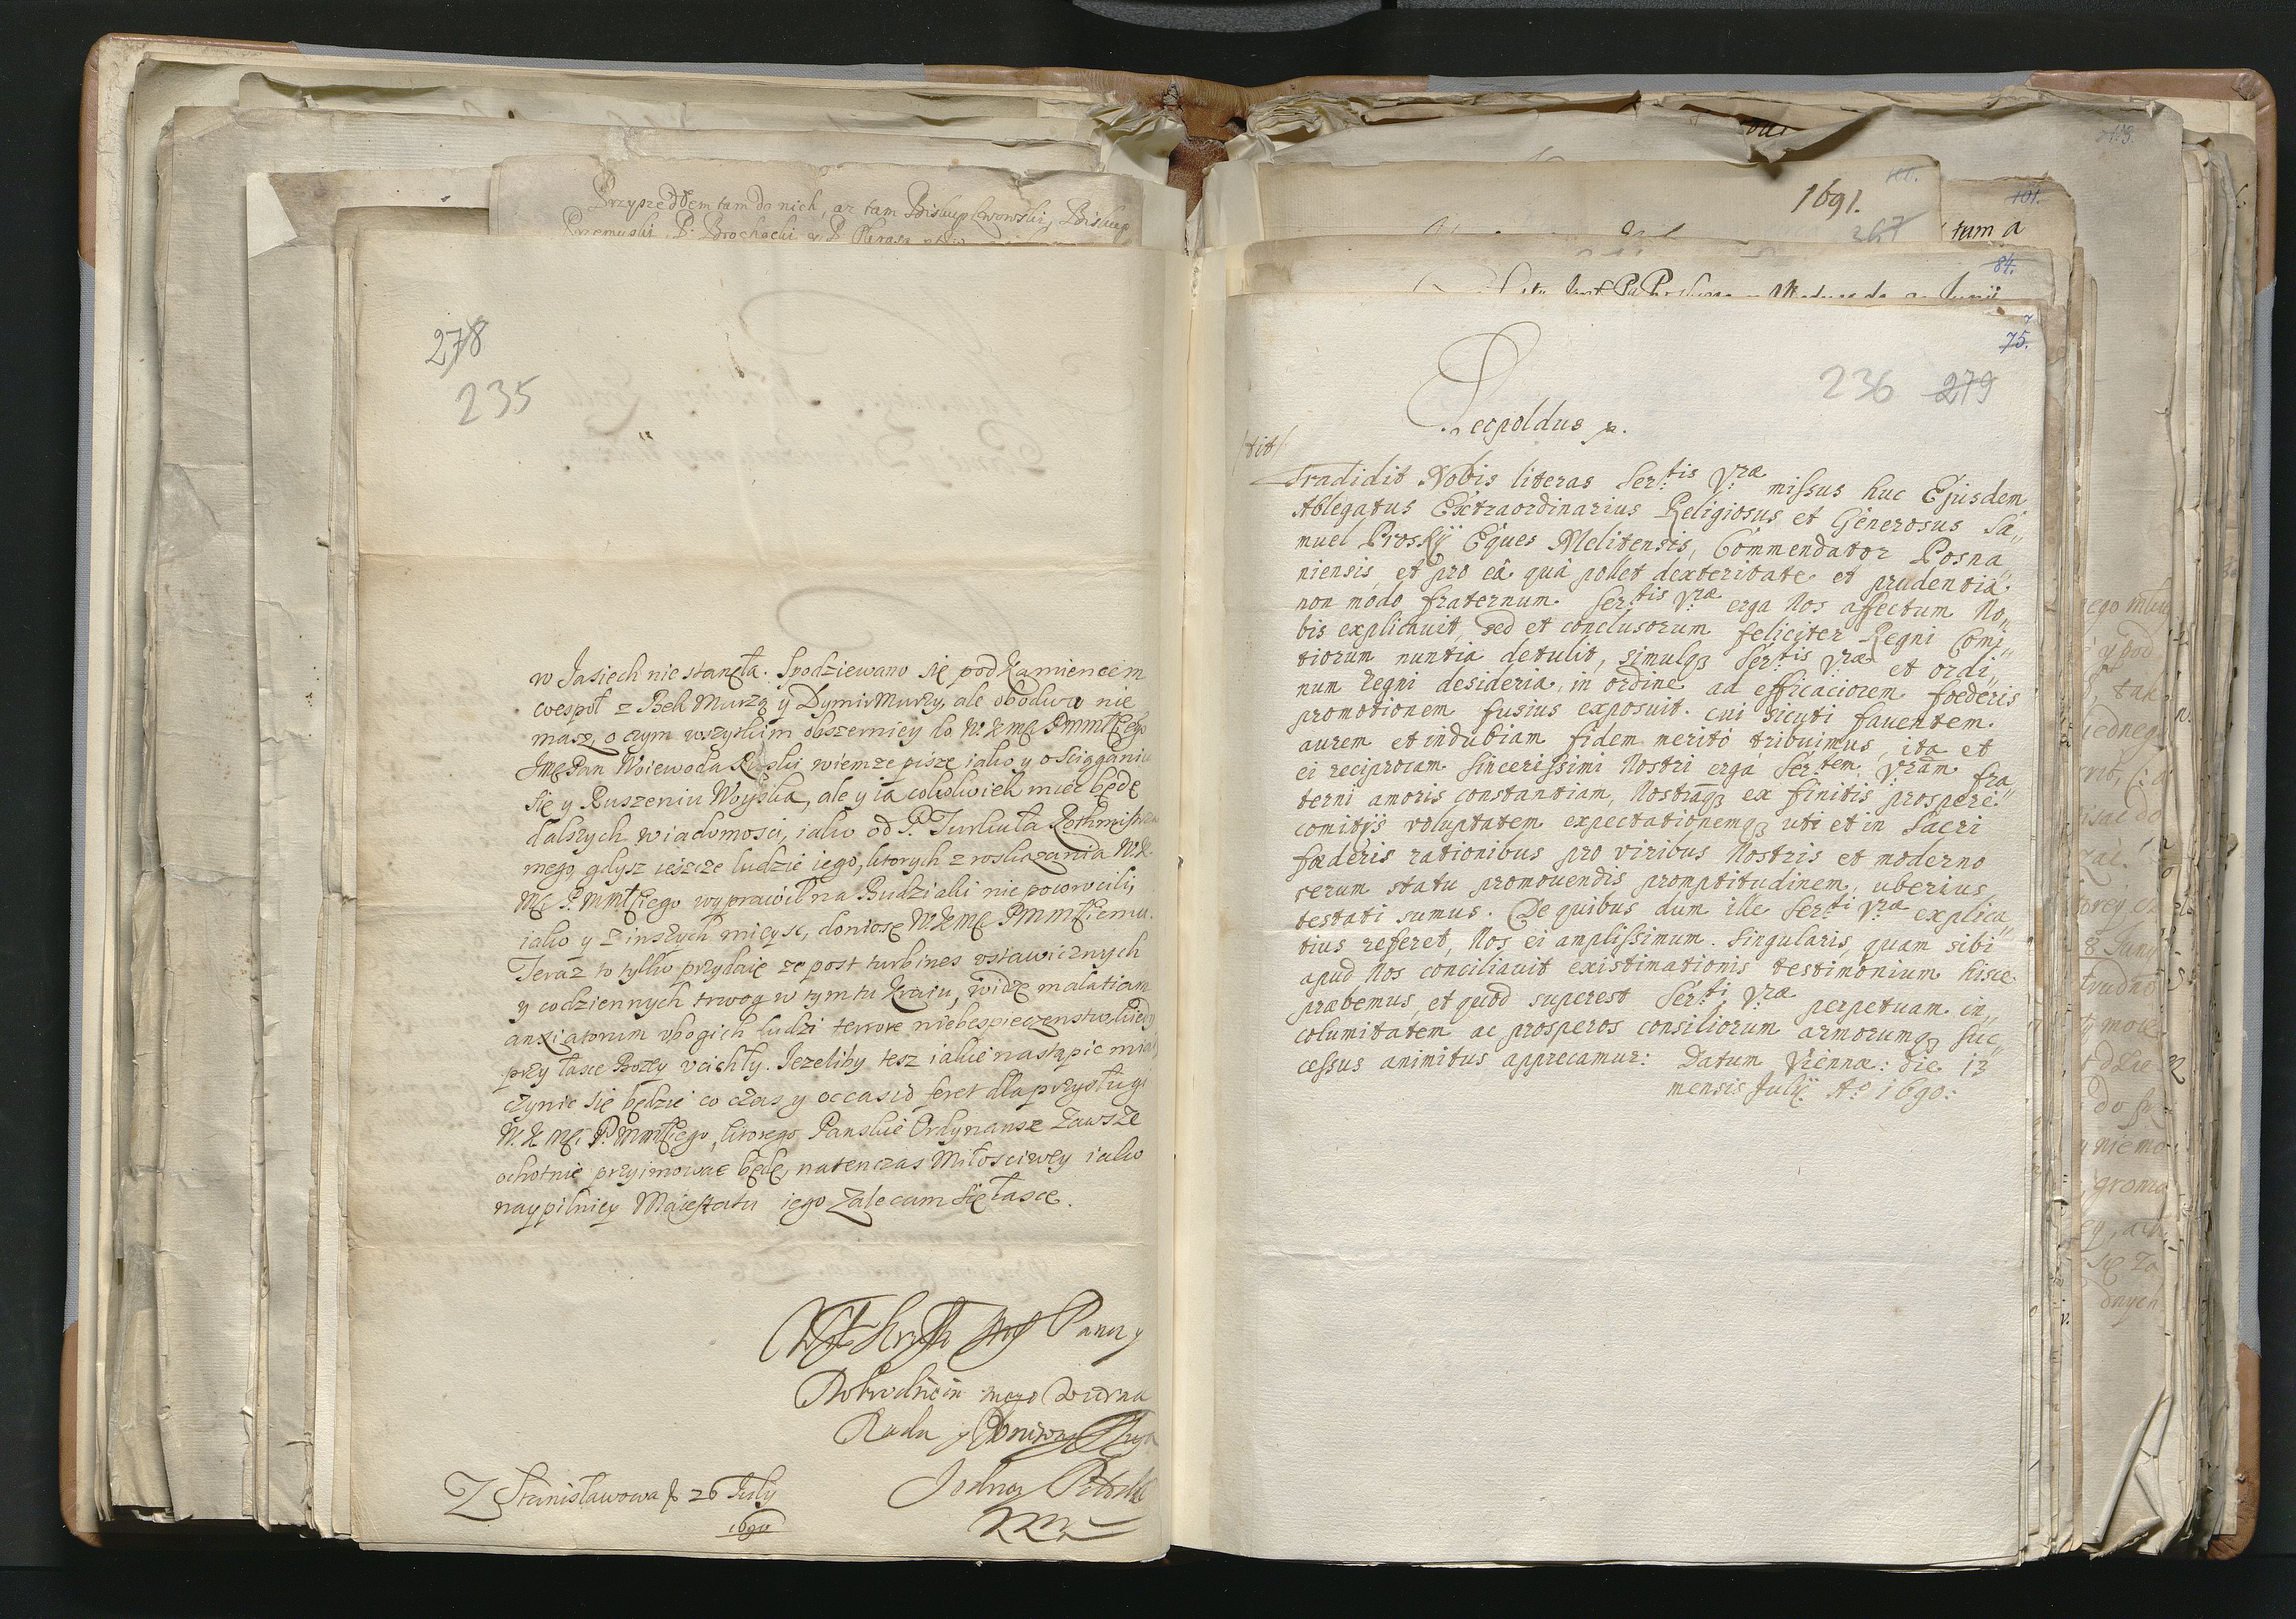 Przyszedłem tam do nich, az tam Biskup Lwowski, Biskup
Przemyski, P. Brochocki y P.
278
235
w Jasiech nie stanęła. Spodziewano się pod Kamiencem
wespoł z Bek Murzą y Dymir Murzy, ale obodwu nie
masz, o czym wszytkim obszerniey do W. K. Mci P M Młściego
JMc Pan Woiewoda Ruski wiem ze pisze iako y o sciąganiu
się y Ruszeniu Woyska, ale y ia cokolwiek miec będę
dalszych wiadomosci, iako od P. Turkuła Rothmistrza
mego, gdysz ieszcze ludzie iego, ktorych z roskazania W. K.
Mci P. M Młściego wyprawił na Budziaki nie powrocili,
iako y z inszych mieysc, doniosę W K Mci P M Młściemu.
Teraz to tylko przydaię ze post turbines ustawicznych
y codziennych trwog w tym tu kraju, widzę malatiam
anxiatorum ubogich ludzi terrore niebespieczenstwa kiedy
przy łasce Bozey ucichły. Jezeliby tesz iakie nastąpic miały
czynic się będzie co czas y occasio feret dla przysługi
W. K. Mci P. M Młściego, ktorego Panskie Ordynanse zawsze
ochotnie przyimowac będę, natenczas Miłosciwey iako
naypilniey Maiestatu iego zalecam się łasce.
Pana y
Dobrodzieia mego wierna
Rada y
Z Stanisławowa d 26 July
1690
1691.
101.
367
101.
tum a
84.
75.
236 279
Leopoldus
/tit/
Tradidit Nobis literas Ser:tis Vræ missus huc Ejusdem
Ablegatus Extraordinarius Religiosus et Generosus Sa„
muel Proskÿ Eques Melitensis, Commendator Posna„
niensis, et pro eâ quâ pollet dexteritate et prudentiâ
non modo fraternum Ser:tis Vræ erga Nos affectum No„
bis explicuit, sed et conclusorum feliciter Regni Comi„
tiorum nuntia detulit, simulqȝ Ser:tis Vræ et ordi„
num Regni desideria, in ordine ad efficaciorem foederis
promotionem fusius exposuit. Cui sicuti faventem
aurem et indubiam fidem meritò tribuimus, ita et
ei reciprocam sincerissimi Nostri erga Ser:tem Vram fra„
terni amoris constantiam, Nostramqȝ ex finitis prosperè
comitijs voluptatem expectationemqȝ uti et in Sacri
fæderis rationibus pro viribus Nostris et moderno
rerum statu promovendis promptitudinem, uberius
testati sumus. De quibus dum ille Ser:ti Vræ explica„
tius referet, Nos ei amplissimum singularis, quam sibi
apud Nos conciliavit existimationis testimonium hisce
præbemus, et quod superest Ser:ti Vræ perpetuam in„
columitatem ac prosperos consiliorum armorumqȝ suc„
cessus animitus apprecamur: Datum Viennæ: die 13
mensis Julij Aº 1690: